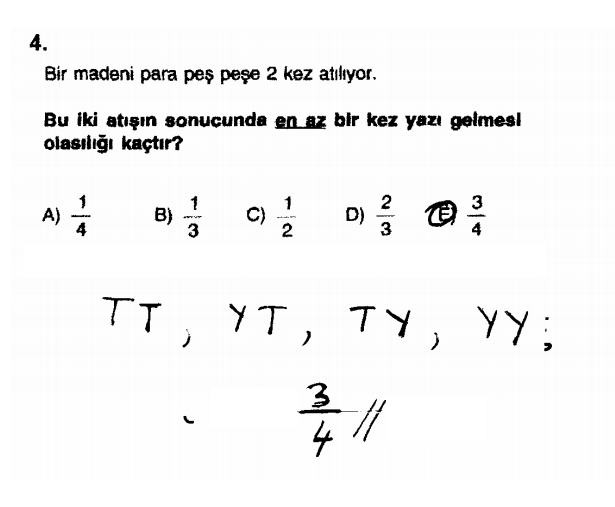 4.
Bir madeni para peş peşe 2 kez atılıyor.
Bu iki atışın sonucunda en az bir kez yazı gelmesi
olasılığı kaçtır?
A) 1/4 B) 1/3 C) 1/2 D) 2/3 E) 3/4
TT, YT, TY, YY;
3/4 //